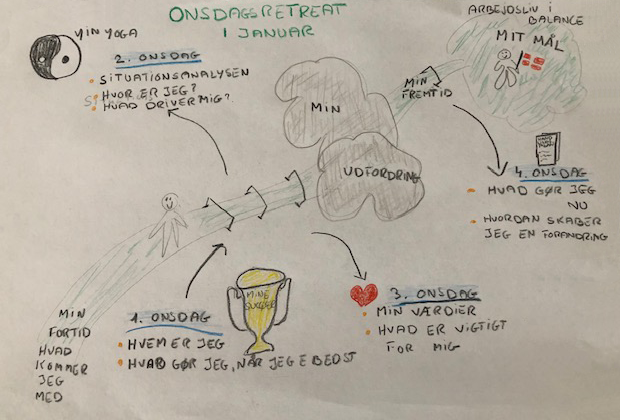 ONSDAGSRETREAT
I JANUAR
YIN YOGA
2. ONSDAG
SITUATIONSANALYSEN
HVOR ER JEG?
HVAD DRIVER MIG?
MIN
UDFORDRING
MIN
FREMTID
ARBEJDSLIV I
BALANCE
MIT MÅL
4. ONSDAG
HVAD GØR JEG
NU
HVORDAN SKABER
JEG EN FORANDRING
MIN
FORTID
HVAD
KOMMER
JEG
MED
1. ONSDAG
HVEM ER JEG
HVAD GØR JEG, NÅR JEG E BEDST
MINE
3. ONSDAG
MIN VÆRDIER
HVAD ER VIGTIGT
FOR MIG